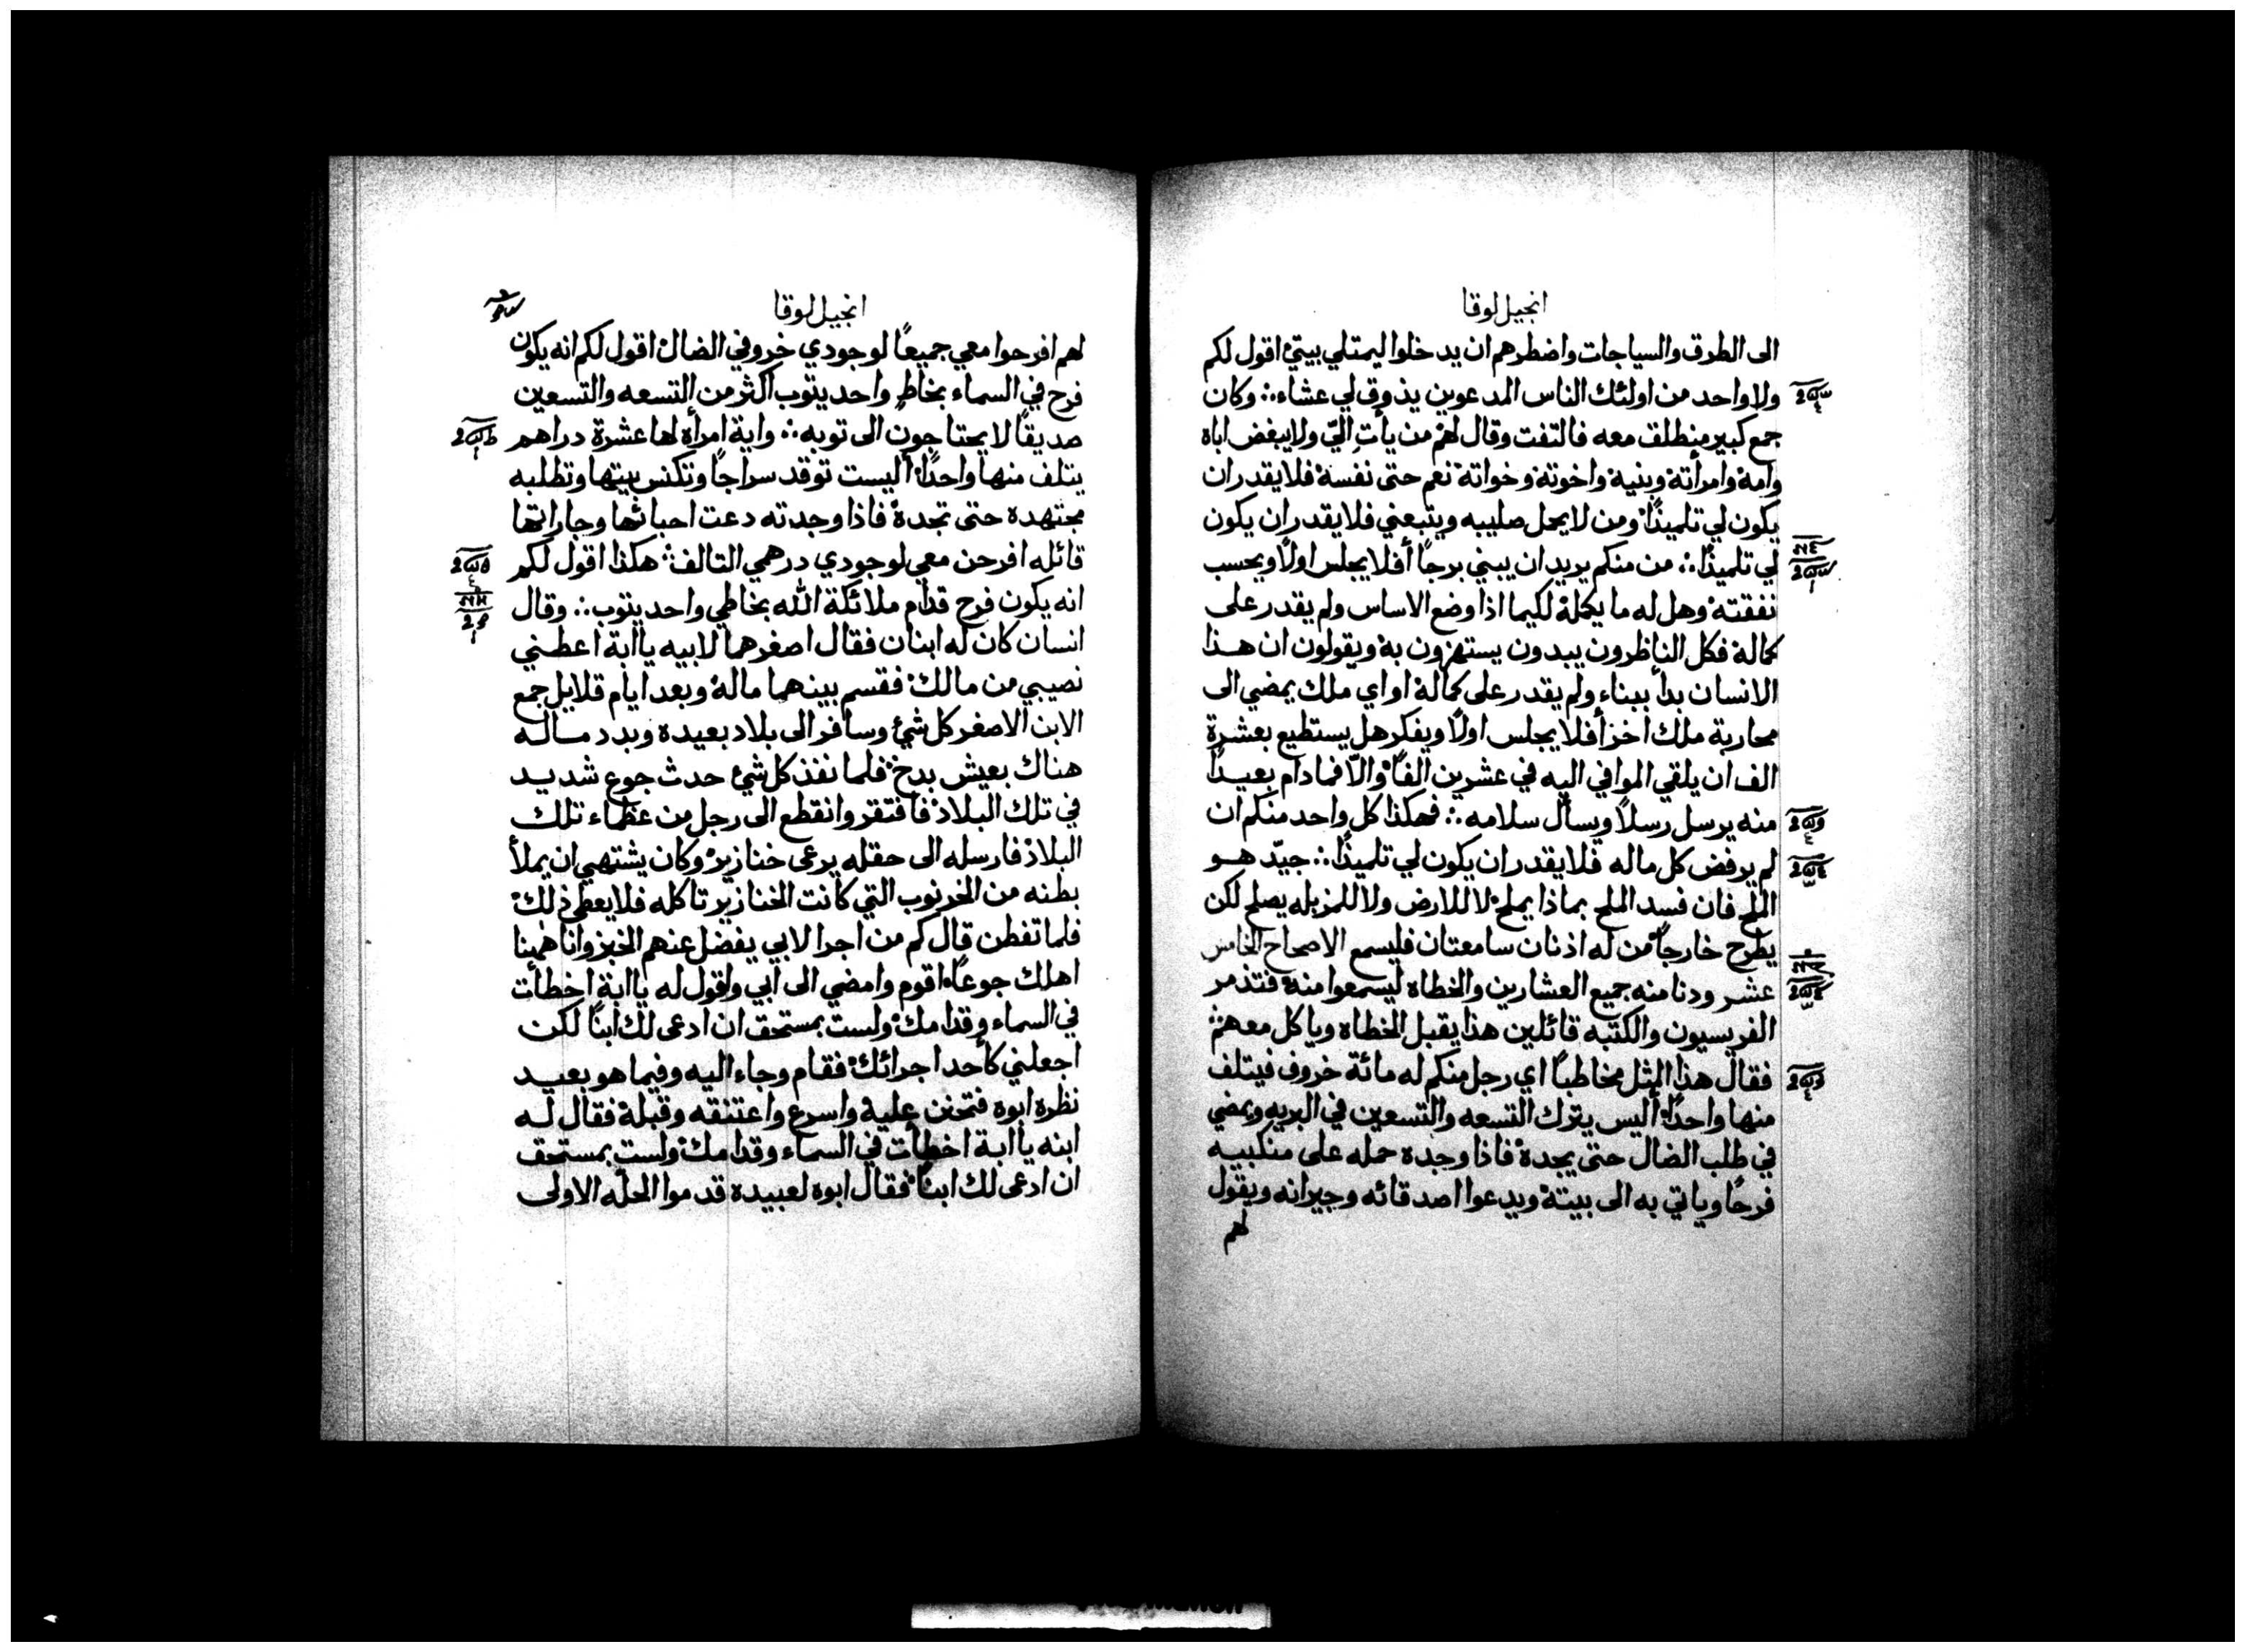 انجيل لوقا
الى الطرق والسياجات واضطرهم ان يدخلوا ليمتلي بيتي اقول لكم
ولا واحد من اولئك الناس المدعوين يذوق لي عشاء ∴ وكان
جمع كبير منطلق معه فالتفت وقال لهم من يأتِ اليّ ولا يبغض اباه
وامه وامرأته وبنيه واخوته وخواته نعم حتى نفسه فلا يقدر ان
يكون لي تلميذًا ومن لا يحمل صليبه ويتبعني فلا يقدر ان يكون
لي تلميذًا ∴ من منكم يريد ان يبني برجًا أفلا يجلس اولًا ويحسب
نفقته وهل له ما يكمله لكيما اذا وضع الاساس ولم يقدر على
كماله فكل الناظرون يبدون يستهزون به ويقولون ان هذا
الانسان بدأ ببناء ولم يقدر على كماله او اي ملك يمضي الى
محاربة ملك اخر أفلا يجلس اولًا ويفكر هل يستطيع بعشرة
الف ان يلقي الموافي اليه في عشرين الفًا والّا فمادام بعيدًا
منه يرسل رسلًا ويسأل سلامه ∴ فهكذا كل واحد منكم ان
لم يرفض كل ماله فلا يقدر ان يكون لي تلميذًا ∴ جيّد هو
الملح فان فسد الملح بماذا يملح لا للارض ولا للمزبله يصلح لكن
يطرح خارجًا من له اذنان سامعتان فليسمع الاصحاح الخامس
عشر ودنا منه جميع العشارين والخطاه ليسمعوا منه فتذمر
الفريسيون والكتبه قائلين هذا يقبل الخطاه وياكل معهم
فقال هذا المثل مخاطبًا اي رجل منكم له مائة خروف فيتلف
منها واحدًا أليس يترك التسعه والتسعين في البريه ويمضي
في طلب الضال حتى يجده فاذا وجده حمله على منكبيه
فرحًا وياتي به الى بيته ويدعوا اصدقائه وجيرانه ويقول
لهم
انجيل لوقا
لهم افرحوا معي جميعًا لوجودي خروفي الضال اقول لكم انه يكون
فرح في السماء بخاطٍ واحد يتوب اكثر من التسعه والتسعين
صديقًا لا يحتاجون الى توبه ∴ واية امرأة لها عشرة دراهم
يتلف منها واحدًا أليست توقد سراجًا وتكنس بيتها وتطلبه
مجتهده حتى تجده فاذا وجدته دعت احبائها وجاراتها
قائله افرحن معي لوجودي درهمي التالف هكذا اقول لكم
انه يكون فرح قدام ملائكة الله بخاطي واحد يتوب ∴ وقال
انسان كان له ابنان فقال اصغرهما لابيه يا ابة اعطني
نصيبي من مالك فقسم بينهما ماله وبعد ايام قلايل جمع
الابن الاصغر كل شيء وسافر الى بلاد بعيده وبدد ماله
هناك بعيش بدخ فلما نفذ كل شيء حدث جوع شديد
في تلك البلاد فافتقر وانقطع الى رجل من عظماء تلك
البلاد فارسله الى حقله يرعى خنازير وكان يشتهي ان يملأ
بطنه من الخرنوب التي كانت الخنازير تاكله فلا يعطى ذلك
فلما تفطن قال كم من اجرا لابي يفضل عنهم الخبز وانا ههنا
اهلك جوعًا اقوم وامضي الى ابي واقول له يا ابة اخطأت
في السماء وقدامك ولست بمستحق ان ادعى لك ابنًا لكن
اجعلني كأحد اجرائك فقام وجاء اليه وفيما هو بعيد
نظره ابوه فتحنن عليه واسرع واعتنقه وقبله فقال له
ابنه يا ابة اخطأت في السماء وقدامك ولست بمستحق
ان ادعى لك ابنًا فقال ابوه لعبيده قدموا الحلّه الاولى